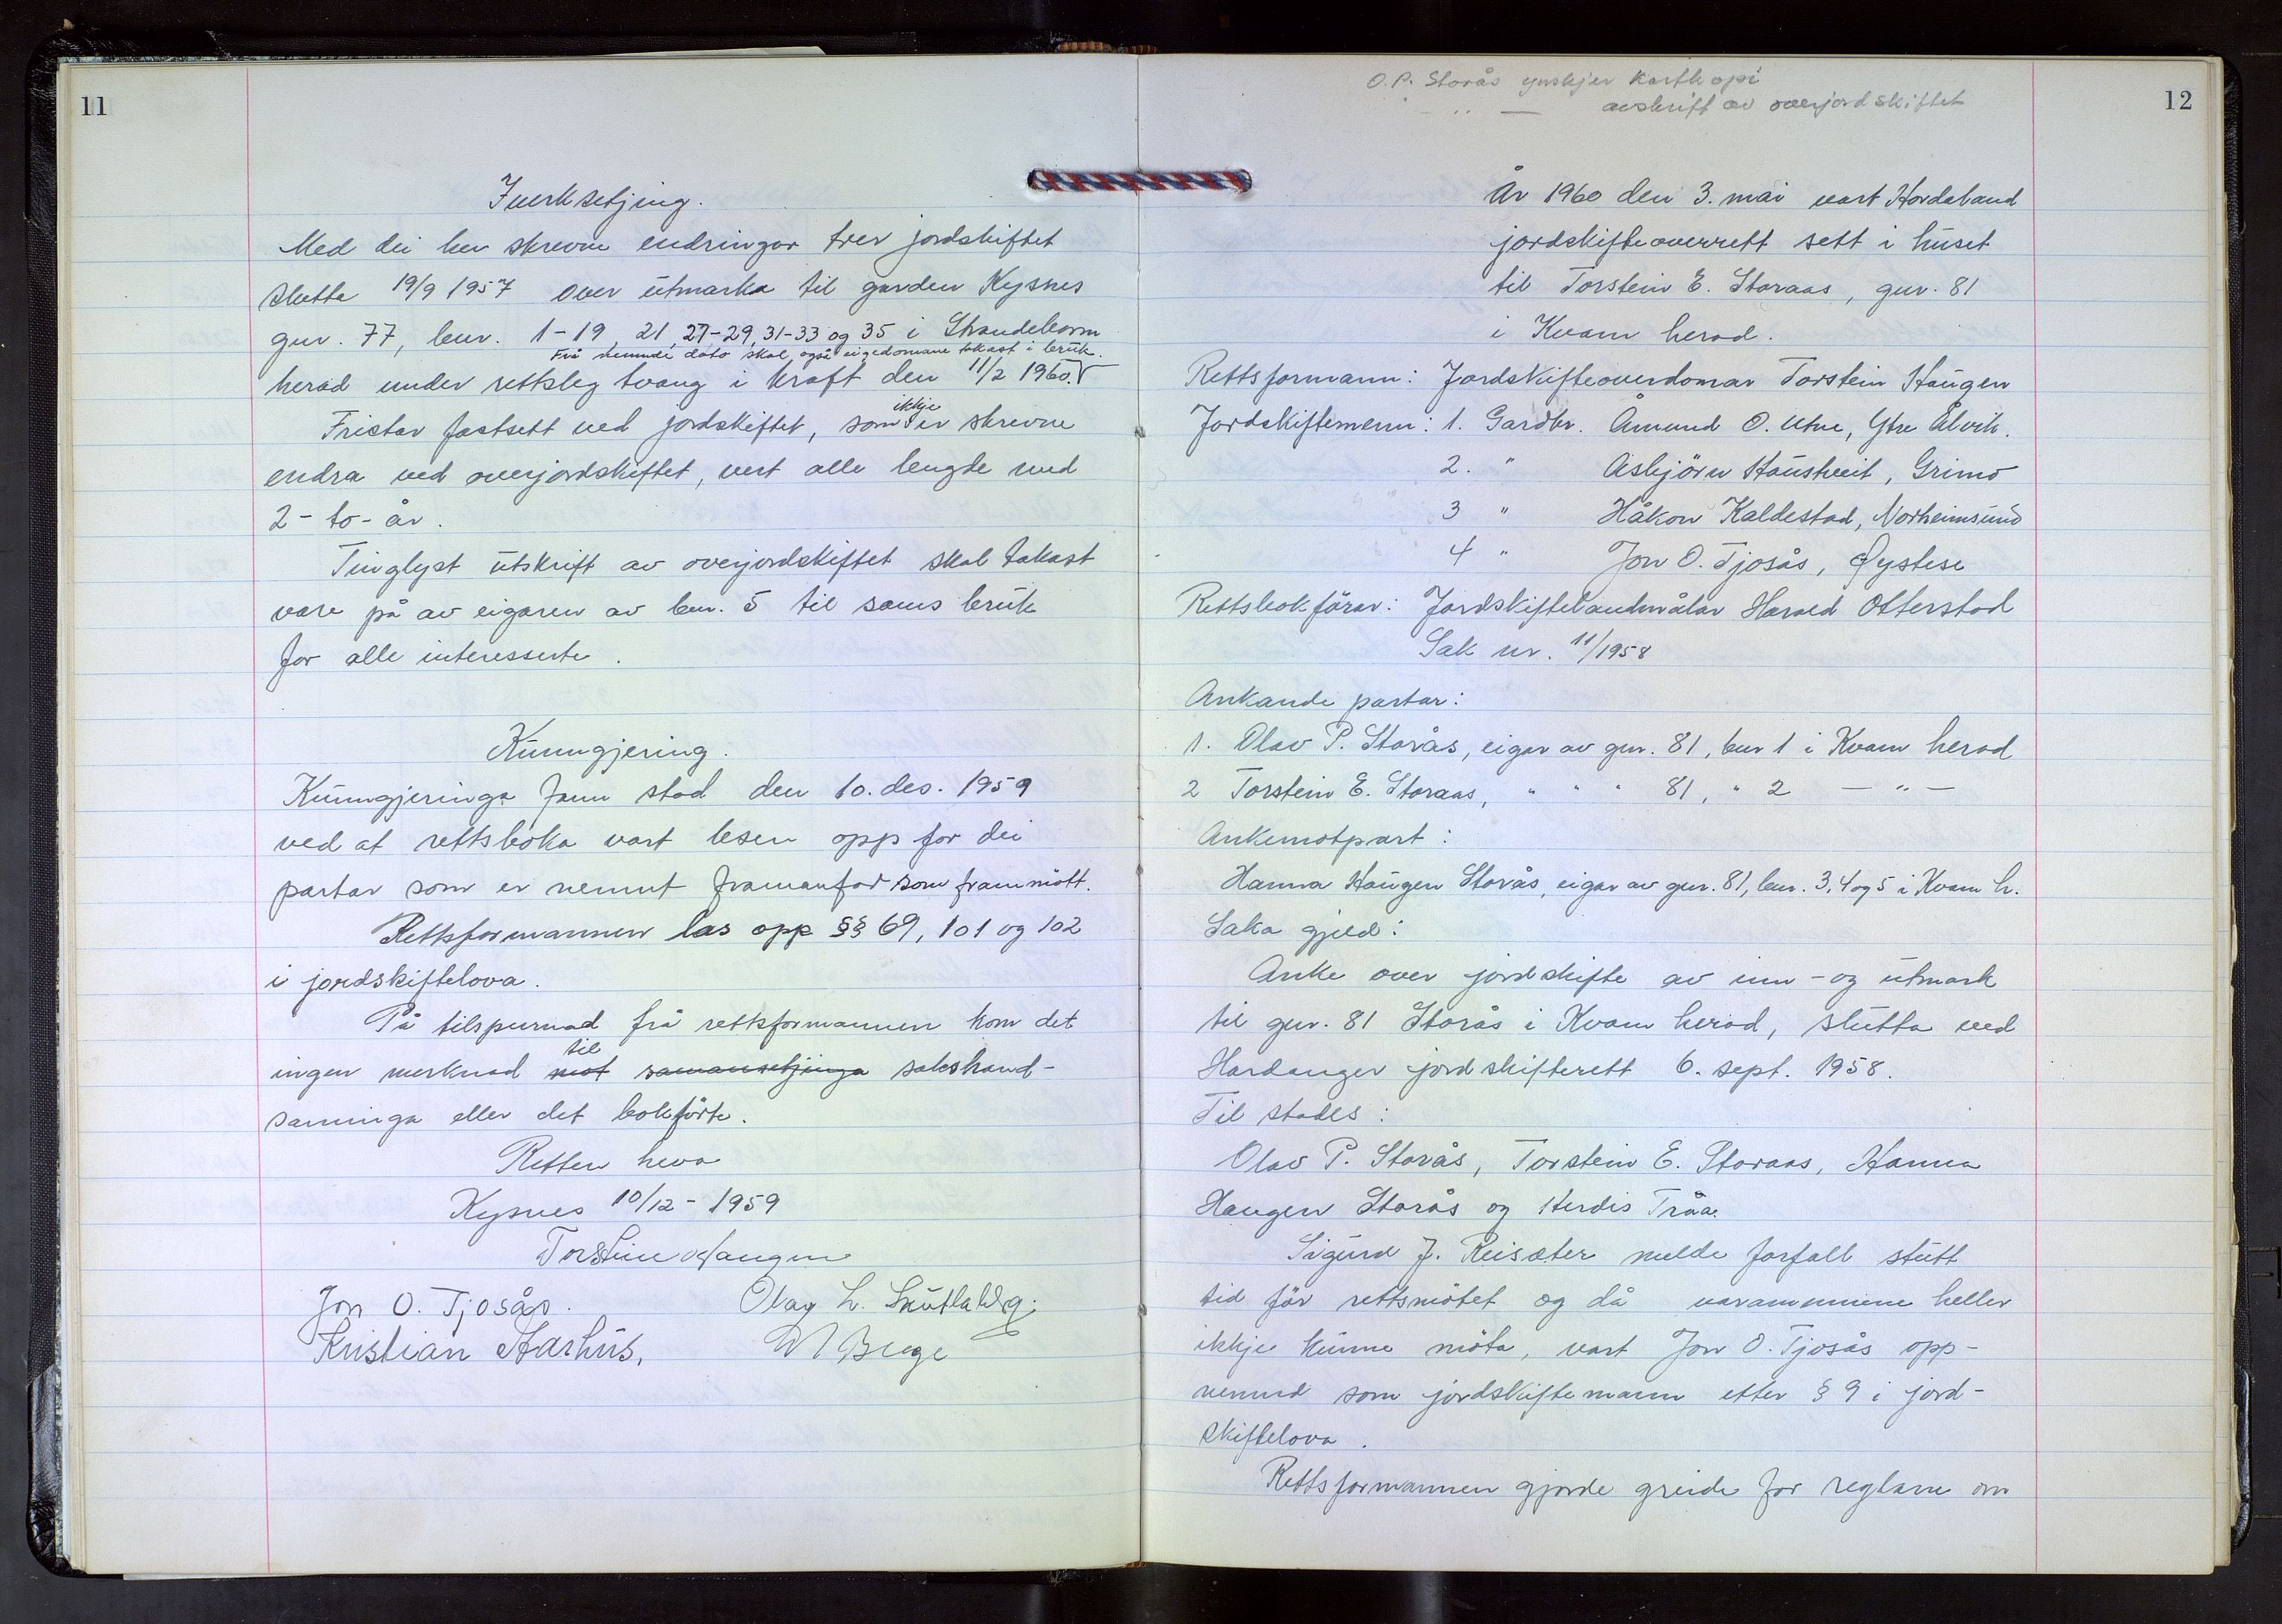 11
Iverksetjing.
Med dei her skrevne endringar trer jordskiftet
slutta 19/9 1957 over utmarka til garden Kysnes
gnr. 77, bnr. 1-19, 21, 27-29, 31-33 og 35 i Strandebarm
Frå nemnde dato skal også eigedomane takast i bruk.
herad under rettsleg tvang i kraft den 11/2 1960. V
ikkje
Fristar fastsett ved jordskiftet, som V er skrevne
endra ved overjordskiftet, vert alle lengde med
2 - to - år.
Tinglyst utskrift av overjordskiftet skal takast
vare på av eigaren av bnr. 5 til sams bruk
for alle interesserte.
Kunngjering.
Kunngjeringa fann stad den 10. des. 1959
ved at rettsboka vart lesen opp for dei
partar som er nemnt framanfor som frammött.
Rettsformannen las opp §§ 69, 101 og 102
i jordskiftelova.
På tilspurnad frå rettsformannen kom det
til
ingen merknad mot samansetjinga sakshand-
saminga eller det bokförte.
Retten heva
Kysnes 10/12 - 1959
Torstein Haugen
Jon O. Tjosås. Olav L. Skutlaberg.
Kristian Aarhus,
12
O.P. Storås ynskjer kartkopi
" — avskrift av overjordskiftet
År 1960 den 3. mai vart Hordaland
jordskifteoverrett sett i huset
til Torstein E. Storaas, gnr. 81
i Kvam herad.
Rettsformann: Jordskifteoverdomar Torstein Haugen
Jordskiftemenn: 1. Gardbr. Åmund O. Utne, Ytre Ålvik.
2. " Asbjörn Haustveit, Grimo
3 " Håkon Kaldestad, Norheimsund
4 " Jon O. Tjosås, Øystese
Rettsbokförar: Jordskiftelandmålar Harald Otterstad
Sak nr. 11/1958
Ankande partar:
1. Olav P. Storås, eigar av gnr. 81, bnr 1 i Kvam herad
2 Torstein E. Storaas, " " " 81, " 2 — " —
Ankemotpart:
Hanna Haugen Storås, eigar av gnr. 81, bnr. 3, 4 og 5 i Kvam h.
Saka gjeld:
Anke over jordskifte av inn - og utmark
til gnr. 81 Storås i Kvam herad, slutta ved
Hardanger jordskifterett 6. sept. 1958.
Til stades:
Olav P. Storås, Torstein E. Storaas, Hanna
Haugen Storås og Herdis Tråa.
Sigurd J. Reisæter melde forfall stutt
tid för rettsmötet og då varamennene heller
ikkje kunne möta, vart Jon O. Tjosås opp-
nemnd som jordskiftemann etter § 9 i jord-
skiftelova.
Rettsformannen gjorde greide for reglane om